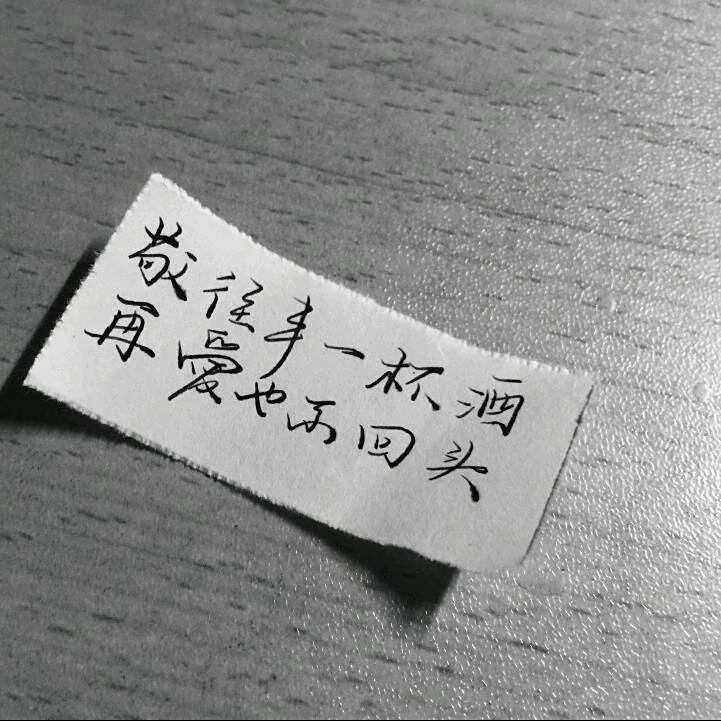 敬往事一杯酒
再愛也不回头